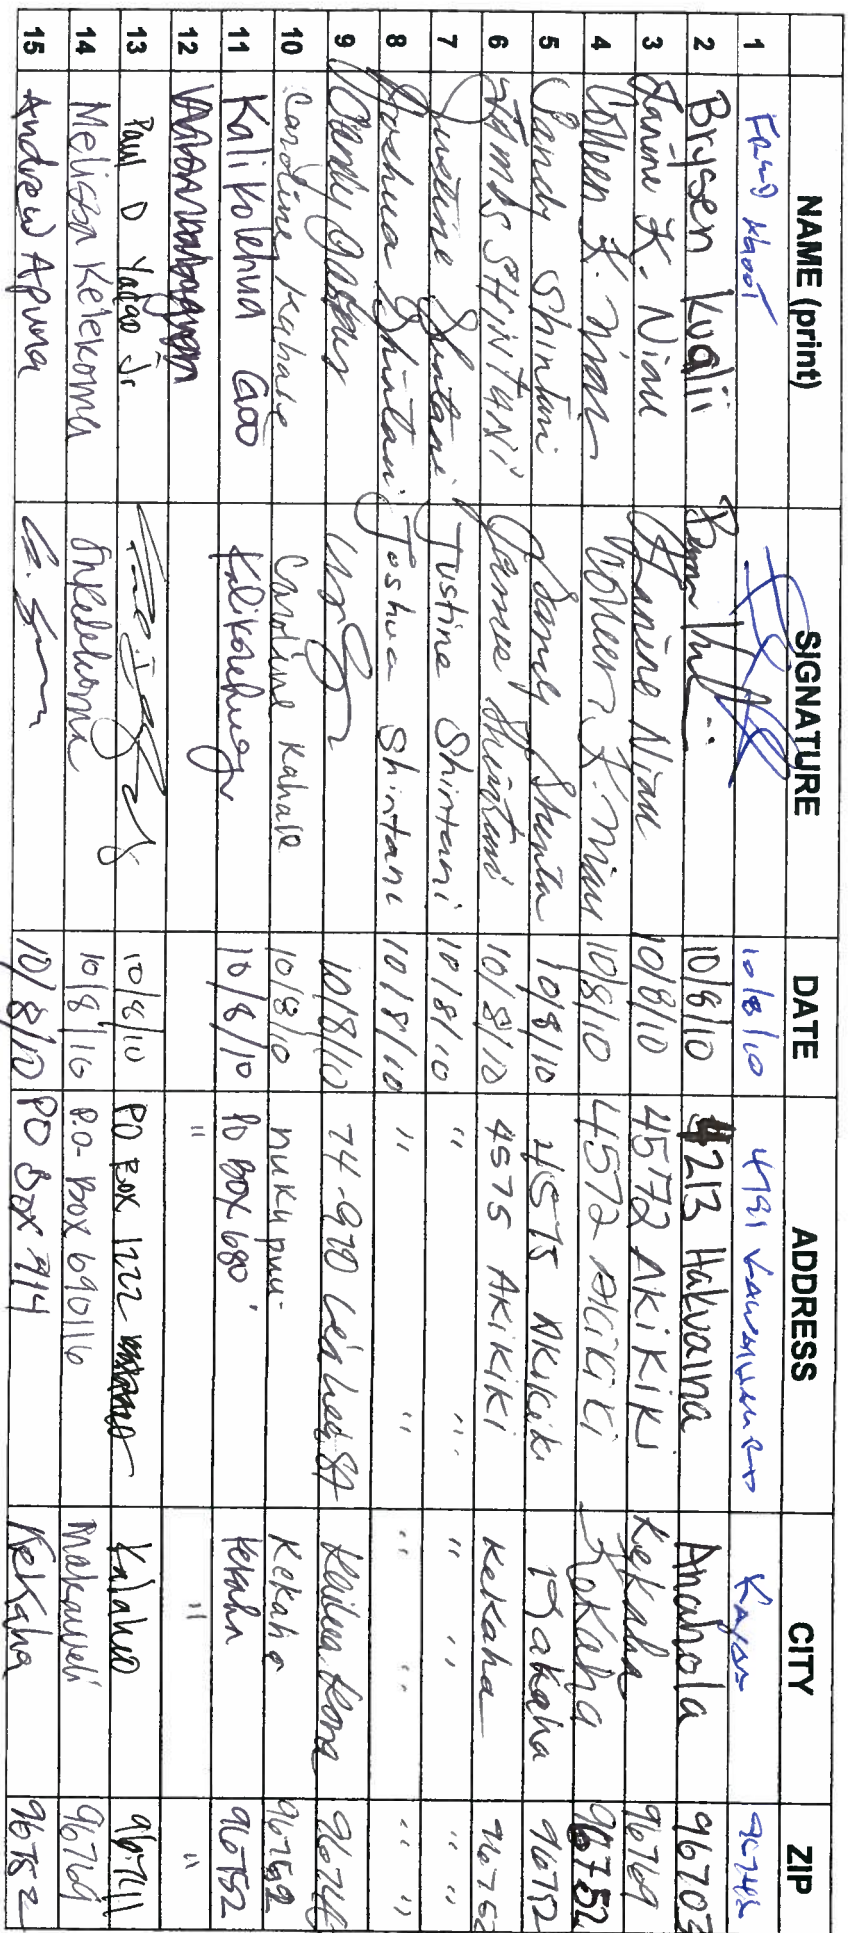 NAME (print) SIGNATURE DATE ADDRESS CITY ZIP
1 10/8/10 4191
2 Brysen Kualii 10/8/10 4213 Anahola 96703
3 Janine K. Niau Janine Niau 10/8/10 4572 AKiKiKi Kekaha 96769
4 Colleen K. Niau Colleen K. Niau 10/8/10 4572 AKiKiKi Kekaha 96752
5 Sandy Shintani Sandy 10/8/10 4575 AKiKiKi Kekaha 96752
6 JAMES SHINTANI James Shintani 10/8/10 4575 AKiKiKi KeKaha 96752
7 Justine Shintani Justine Shintani 10/8/10 " " " " " "
8 Joshua Shintani Joshua Shintani 10/8/10 " " " " " "
9 Wendy 10/8/10 74-970 Kailua Kona
10 Caroline Kahale Caroline Kahale 10/8/10 nukupuu Kekaha 96752
11 Kalikolehua 10/8/10 PO BOX 680 96752
12 " " "
13 Paul D Jr 10/8/10 PO BOX 1222 Kalaheo 96741
14 Melissa Kelekoma 10/8/10 P.O- BOX 690116 Makaweli 96769
15 Andrew Apuna 10/8/10 PO Box 914 KeKaha 96752